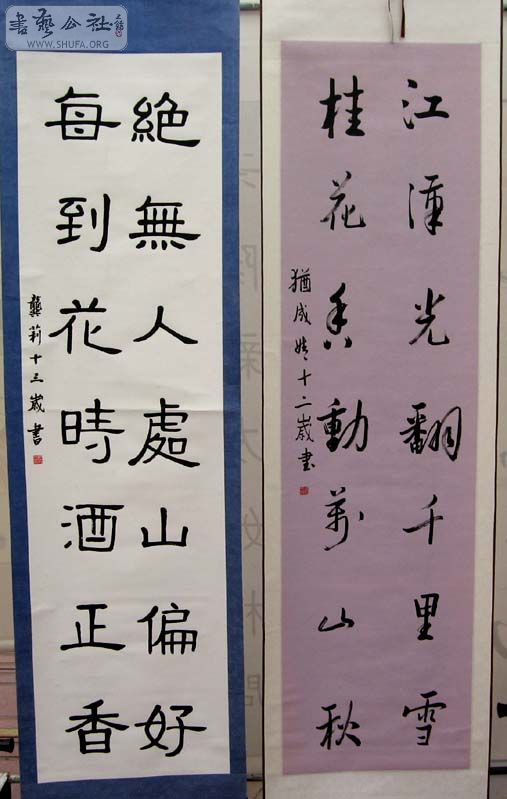 書藝公社
WWW.SHUFA.ORG
絶無人處山偏好
每到花時酒正香
龔莉十三歲書
江潭光翻千里雪
桂花香動萬山秋
猶成十二歲書